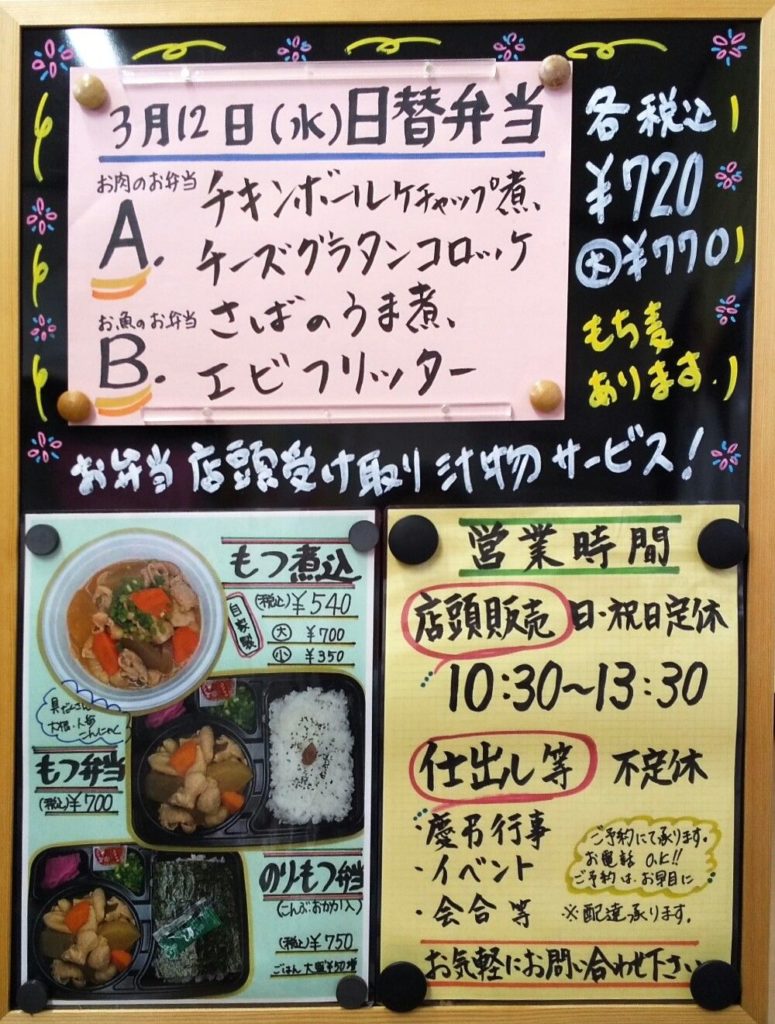 3月12日(水)日替弁当
お肉のお弁当
A.
チキンボールケチャップ煮、
チーズグラタンコロッケ
お魚のお弁当
B.
さばのうま煮、
エビフリッター
各税込
¥720
大¥770
もち麦
あります。
お弁当店頭受け取り汁物サービス!
もつ煮込
自家製
(税込)¥540
大 ¥700
小 ¥350
具だくさん
大根・人参
こんにゃく
もつ弁当
(税込)¥700
のりもつ弁当
(こんぶ・おかか入)
(税込)¥750
ごはん大盛¥50増
営業時間
店頭販売 日・祝日定休
10:30~13:30
仕出し等 不定休
・慶弔行事
・イベント
・会合等
ご予約にて承ります。
お電話 O.K!!
ご予約は、お早目に
※配達承ります。
お気軽にお問い合わせ下さい